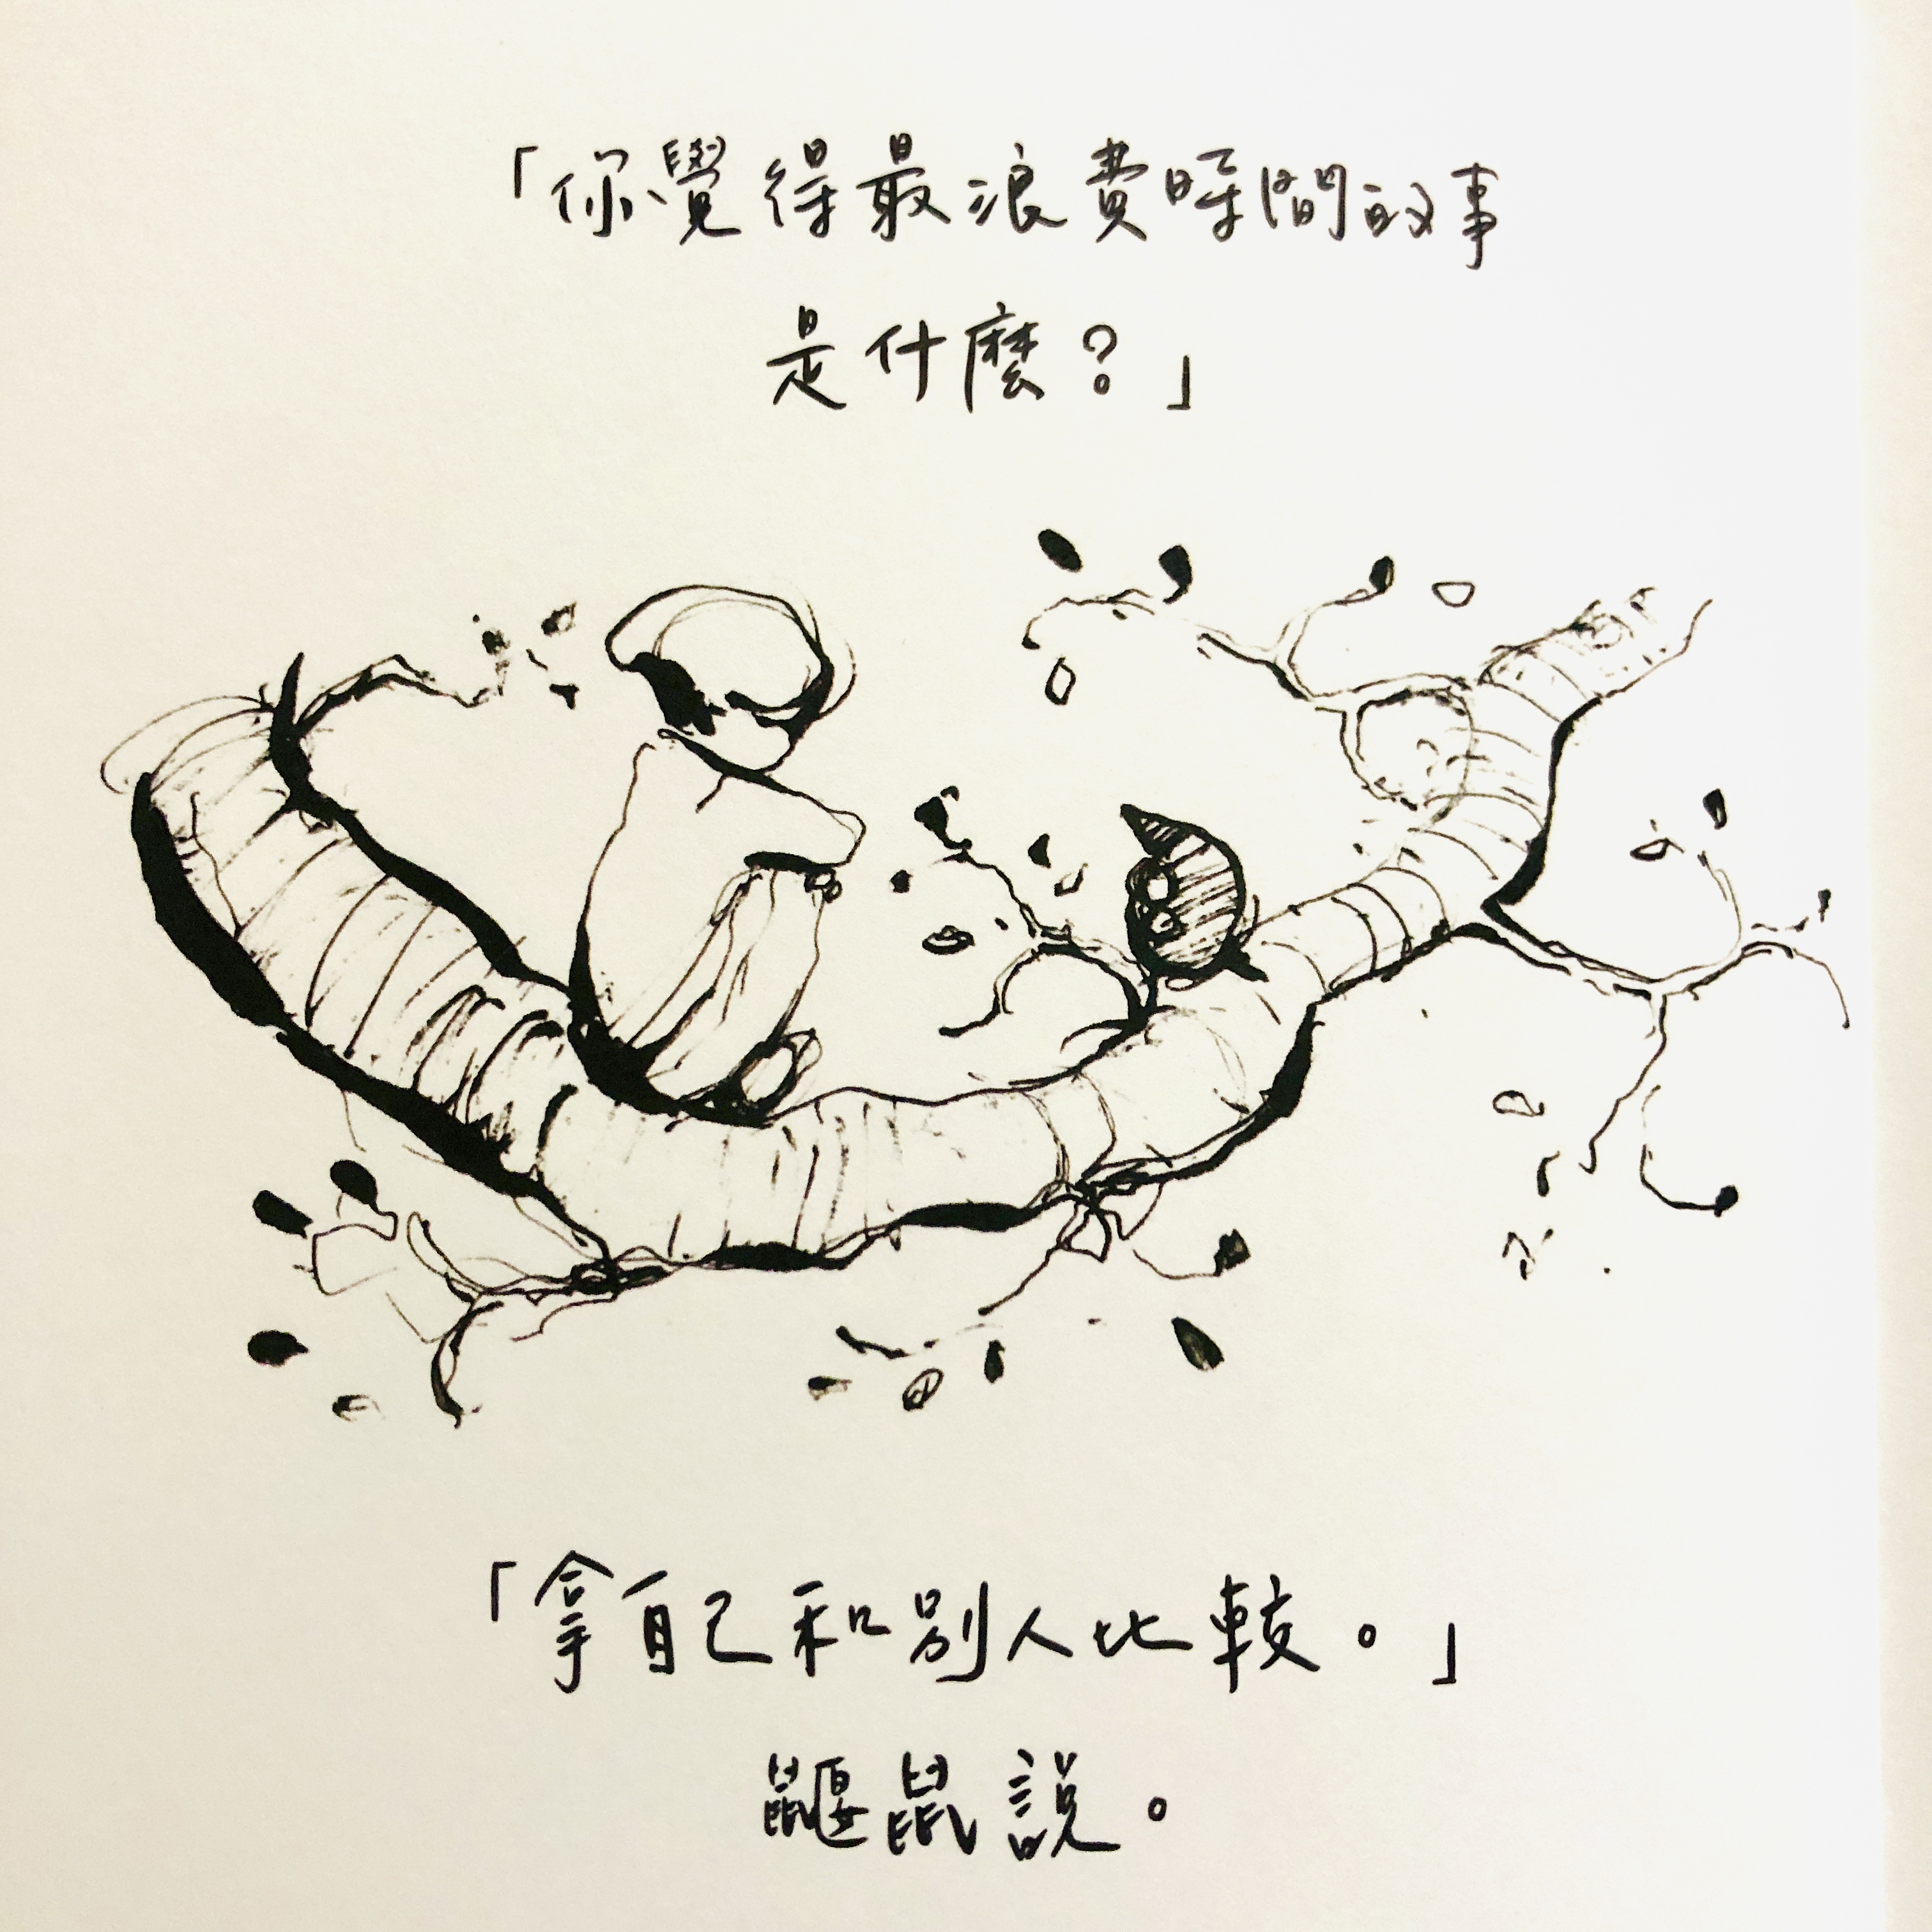 「你覺得最浪費時間的事
是什麼？」
「拿自己和別人比較。」
鼴鼠說。